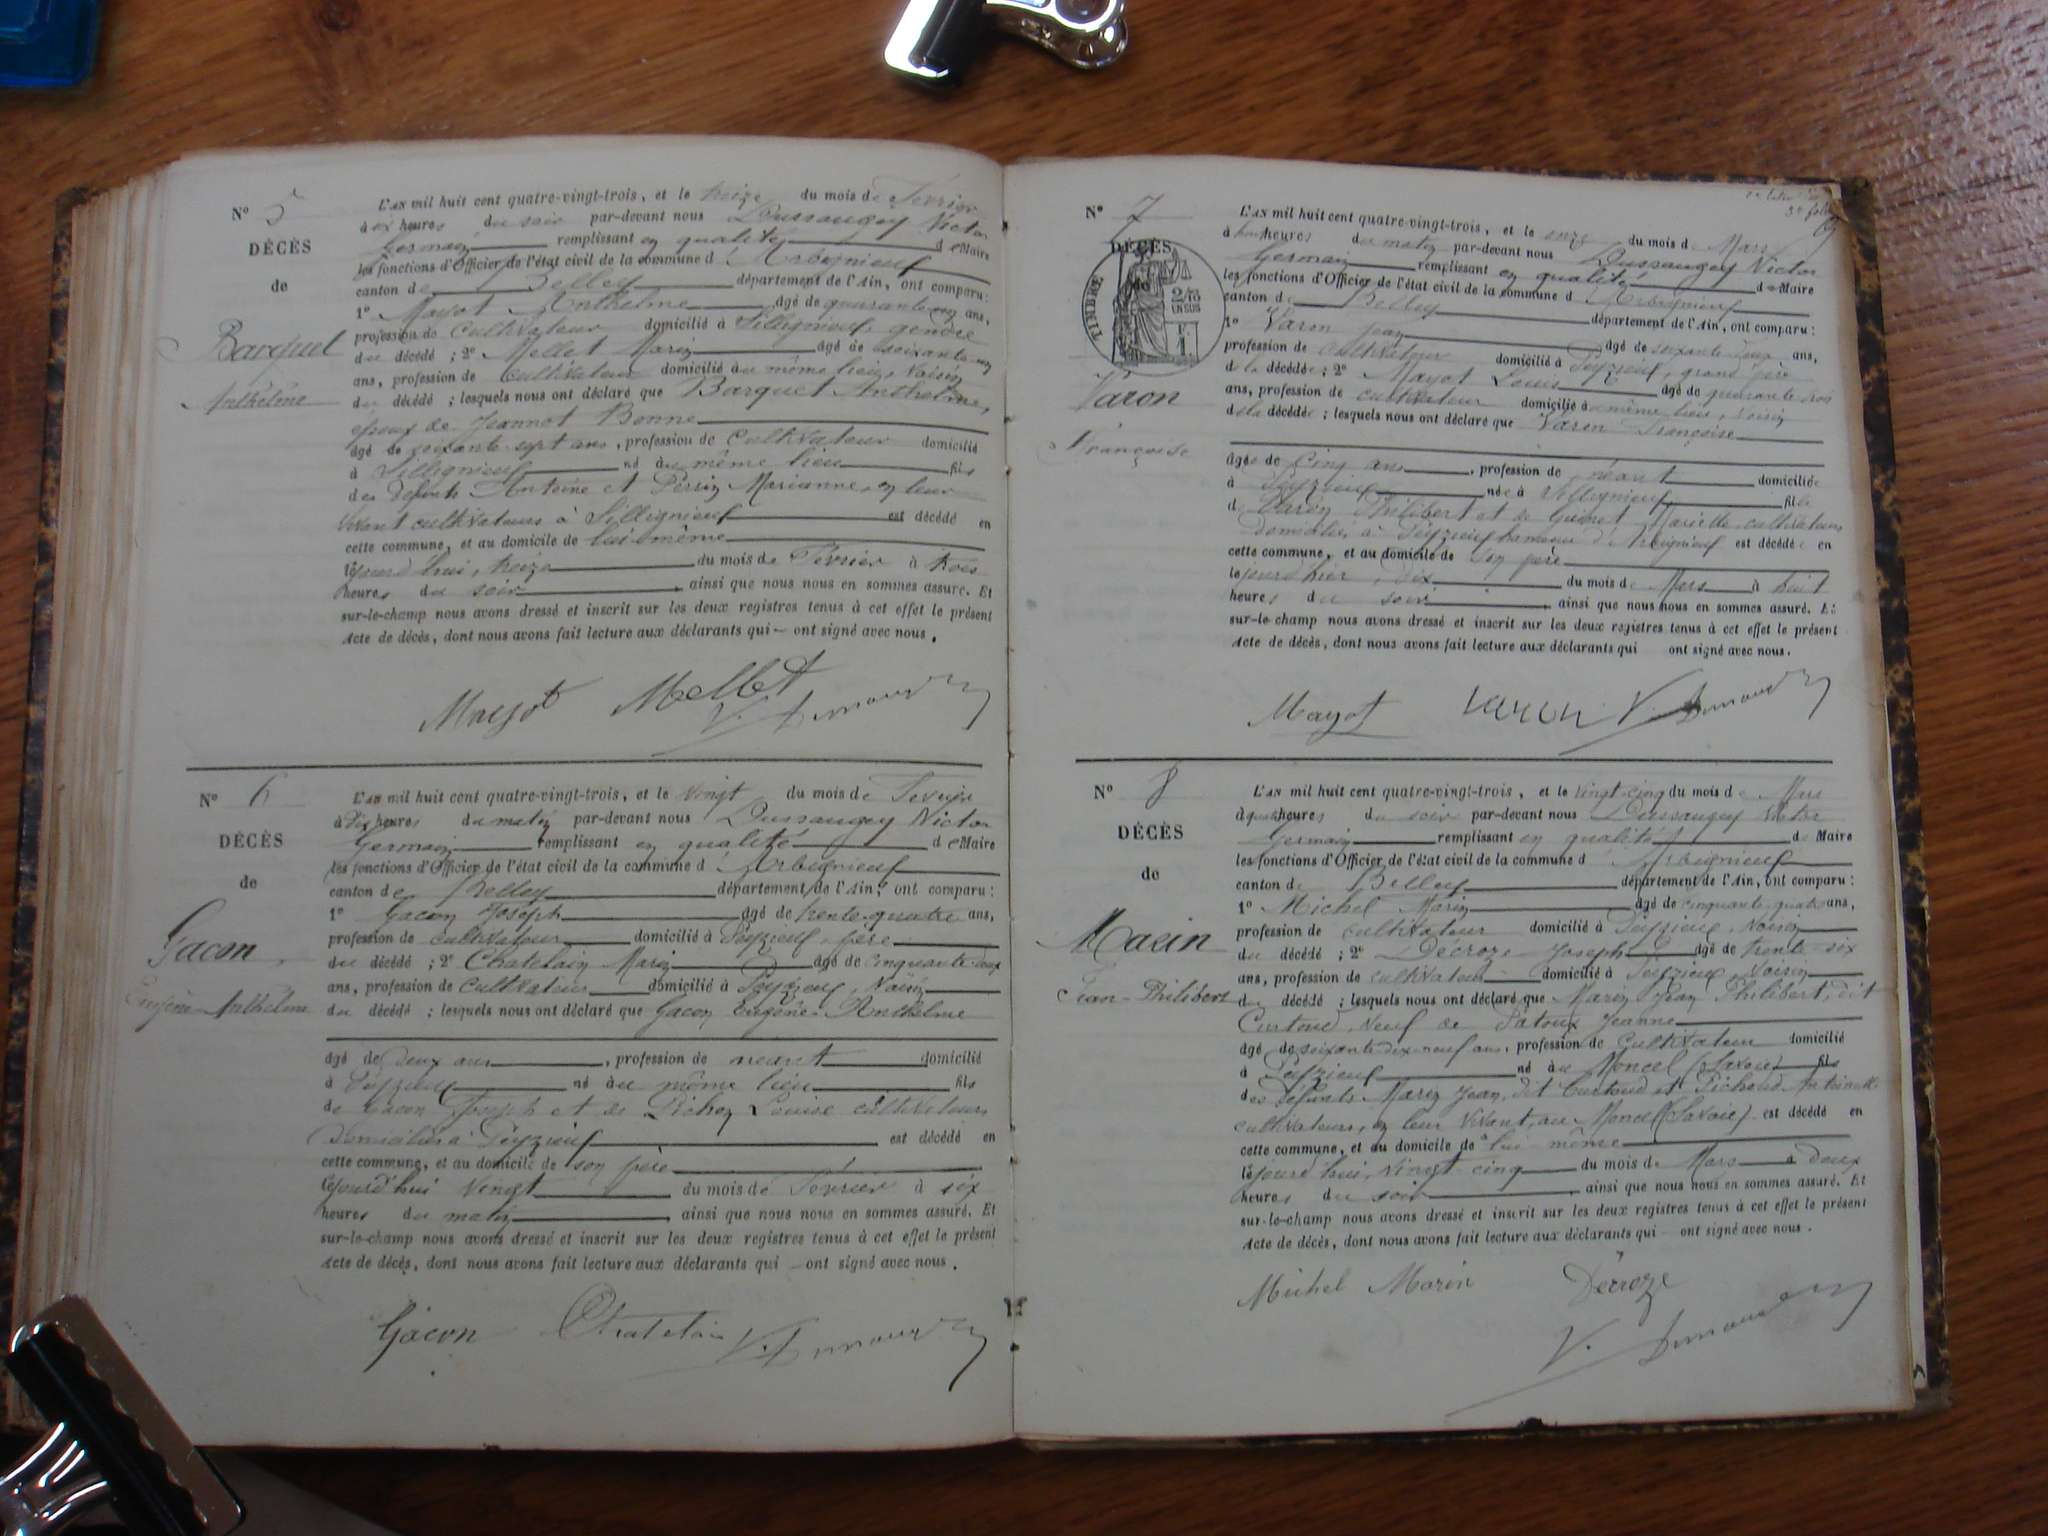 N° 5
DÉCÈS
de
Barquet
Anthelme
L'AN mil huit cent quatre-vingt-trois, et le treize du mois de Février
à six heures du soir par-devant nous Dussaugey Victor
Germain remplissant en qualité de Maire
les fonctions d'Officier de l'état civil de la commune d'Arbignieu
canton de Belley département de l'Ain, ont comparu :
1° Mayot Anthelme âgé de quarante ans,
profession de Cultivateur domicilié à Sillignieu, gendre
du décédé ; 2° Mellet Marin âgé de soixante
ans, profession de cultivateur domicilié au même lieu, voisin
du décédé ; lesquels nous ont déclaré que Barquet Anthelme,
époux de Jeannot Bonne
âgé de soixante sept ans, profession de Cultivateur domicilié
à Sillignieu né au même lieu fils
des défunts Antoine et Perrin Marianne, en leur
vivant cultivateurs à Sillignieu est décédé en
cette commune, et au domicile de lui-même
lejourd'hui, treize du mois de Février à trois
heures du soir, ainsi que nous nous en sommes assuré. Et
sur-le-champ nous avons dressé et inscrit sur les deux registres tenus à cet effet le présent
Acte de décès, dont nous avons fait lecture aux déclarants qui — ont signé avec nous.
Mayot Mellet
N° 6
DÉCÈS
de
Gacon
Eugène Anthelme
L'AN mil huit cent quatre-vingt-trois, et le vingt du mois de Février
à dix heures du matin par-devant nous Dussaugey Victor
Germain remplissant en qualité de Maire
les fonctions d'Officier de l'état civil de la commune d'Arbignieu
canton de Belley département de l'Ain, ont comparu :
1° Gacon Joseph âgé de trente-quatre ans,
profession de cultivateur domicilié à Peyzieu, père
du décédé ; 2° Chatelain Marin âgé de cinquante-deux
ans, profession de Cultivateur domicilié à Peyzieu, voisin
du décédé ; lesquels nous ont déclaré que Gacon Eugène-Anthelme
âgé de deux ans, profession de néant domicilié
à Peyzieu né au même lieu fils
de Gacon Joseph et de Pichon Louise cultivateurs
domiciliés à Peyzieu est décédé en
cette commune, et au domicile de son père
lejourd'hui vingt du mois de Février à six
heures du matin, ainsi que nous nous en sommes assuré. Et
sur-le-champ nous avons dressé et inscrit sur les deux registres tenus à cet effet le présent
Acte de décès, dont nous avons fait lecture aux déclarants qui — ont signé avec nous.
Gacon Chatelain
3e
N° 7
DÉCÈS
de
TIMBRE
2/10
EN SUS
Varon
Françoise
L'AN mil huit cent quatre-vingt-trois, et le onze du mois de Mars
à heures du matin par-devant nous Dussaugey Victor
Germain remplissant en qualité de Maire
les fonctions d'Officier de l'état civil de la commune d'Arbignieu
canton de Belley département de l'Ain, ont comparu :
1° Varon Jean âgé de soixante-deux ans,
profession de cultivateur domicilié à Peyzieu, grand père
de la décédée ; 2° Mayot Louis âgé de quarante-trois
ans, profession de cultivateur domicilié au même lieu, voisin
de la décédée ; lesquels nous ont déclaré que Varon Françoise
âgée de cinq ans, profession de néant domiciliée
à Peyzieu née à Sillignieu fille
de Varon Philibert et de Guinet Mariette cultivateurs
domiciliés à Peyzieu hameau d'Arbignieu est décédée en
cette commune, et au domicile de son père
lejourd'hier, dix du mois de Mars à huit
heures du soir, ainsi que nous nous en sommes assuré. Et
sur-le-champ nous avons dressé et inscrit sur les deux registres tenus à cet effet le présent
Acte de décès, dont nous avons fait lecture aux déclarants qui ont signé avec nous.
Mayot Varon
N° 8
DÉCÈS
de
Marin
Jean-Philibert
L'AN mil huit cent quatre-vingt-trois, et le vingt-cinq du mois de Mars
à quatre heures du soir par-devant nous Dussaugey Victor
Germain remplissant en qualité de Maire
les fonctions d'Officier de l'état civil de la commune d'Arbignieu
canton de Belley département de l'Ain, ont comparu :
1° Michel Marin âgé de cinquante-quatre ans,
profession de cultivateur domicilié à Peyzieu, voisin
du décédé ; 2° Décroze Joseph âgé de trente-six
ans, profession de cultivateur domicilié à Peyzieu, voisin
du décédé ; lesquels nous ont déclaré que Marin Jean Philibert, dit
Curtoud, veuf de Patoux Jeanne
âgé de soixante-dix-neuf ans, profession de Cultivateur domicilié
à Peyzieu né au Moncel (Savoie) fils
des défunts Marin Jean, dit Curtoud et Pichoud Antoinette
cultivateurs, en leur vivant, au Moncel (Savoie) est décédé en
cette commune, et au domicile de lui-même
lejourd'hui, vingt-cinq du mois de Mars à deux
heures du soir, ainsi que nous nous en sommes assuré. Et
sur-le-champ nous avons dressé et inscrit sur les deux registres tenus à cet effet le présent
Acte de décès, dont nous avons fait lecture aux déclarants qui — ont signé avec nous.
Michel Marin Décroze